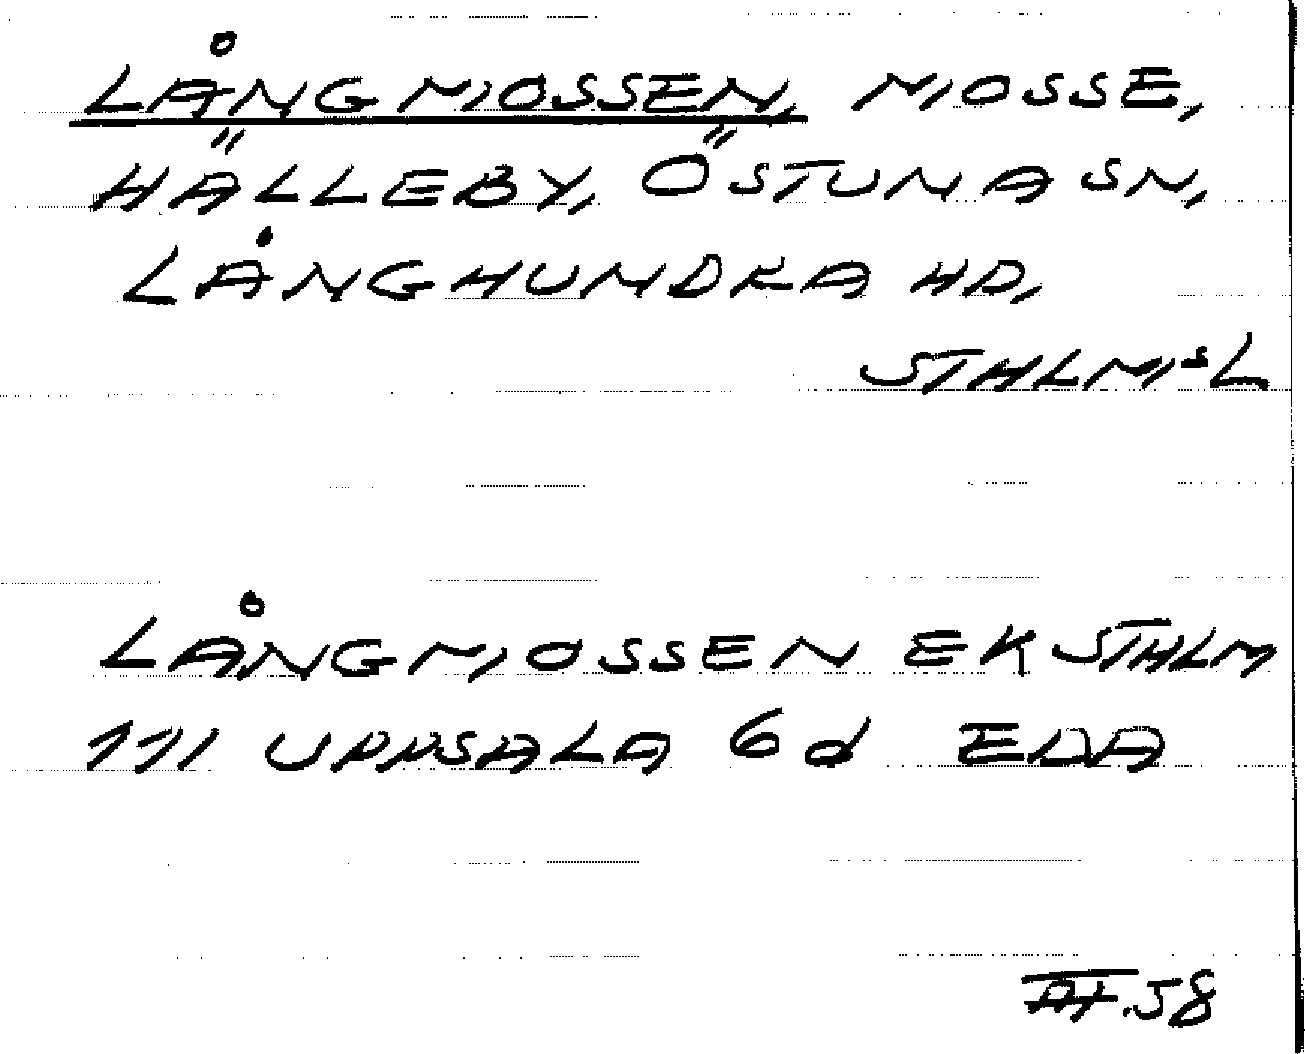 LÅNGMOSSEN, MOSSE,
HÄLLEBY, ÖSTUNA SN,
LÅNGHUNDRA HD,
STHLMS L
LÅNGMOSSEN EK STHLM
111 UPPSALA 6d EDA
.58